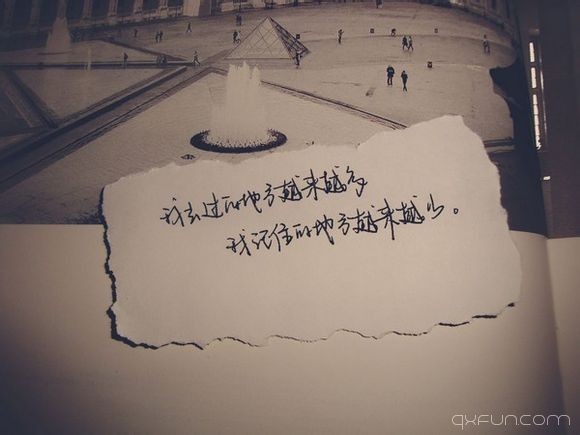 我去过的地方越来越多
我记住的地方越来越少。
qxfun.com